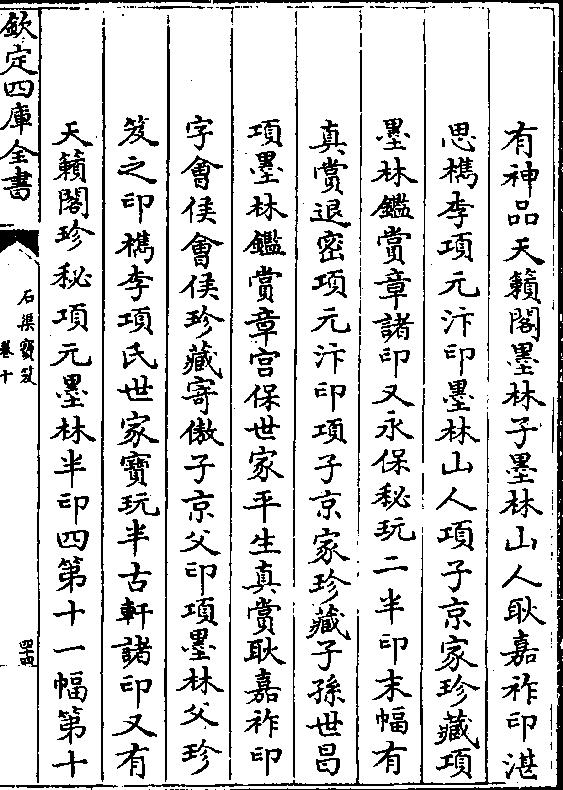 有神品天籟閣墨林子墨林山人耿嘉祚印湛
思檇李項元汴印墨林山人項子京家珍藏項
墨林鑑賞章諸印又永保秘玩二半印末幅有
真賞退密項元汴印項子京家珍藏子孫世昌
項墨林鑑賞章宫保世家平生真賞耿嘉祚印
字㑹侯㑹侯珍藏寄傲子京父印項墨林父珍
笈之印檇李項氏世家寶玩半古軒諸印又有
天籟閣珍秘項元墨林半印四第十一幅第十
欽定四庫全書
石渠寶笈
卷十